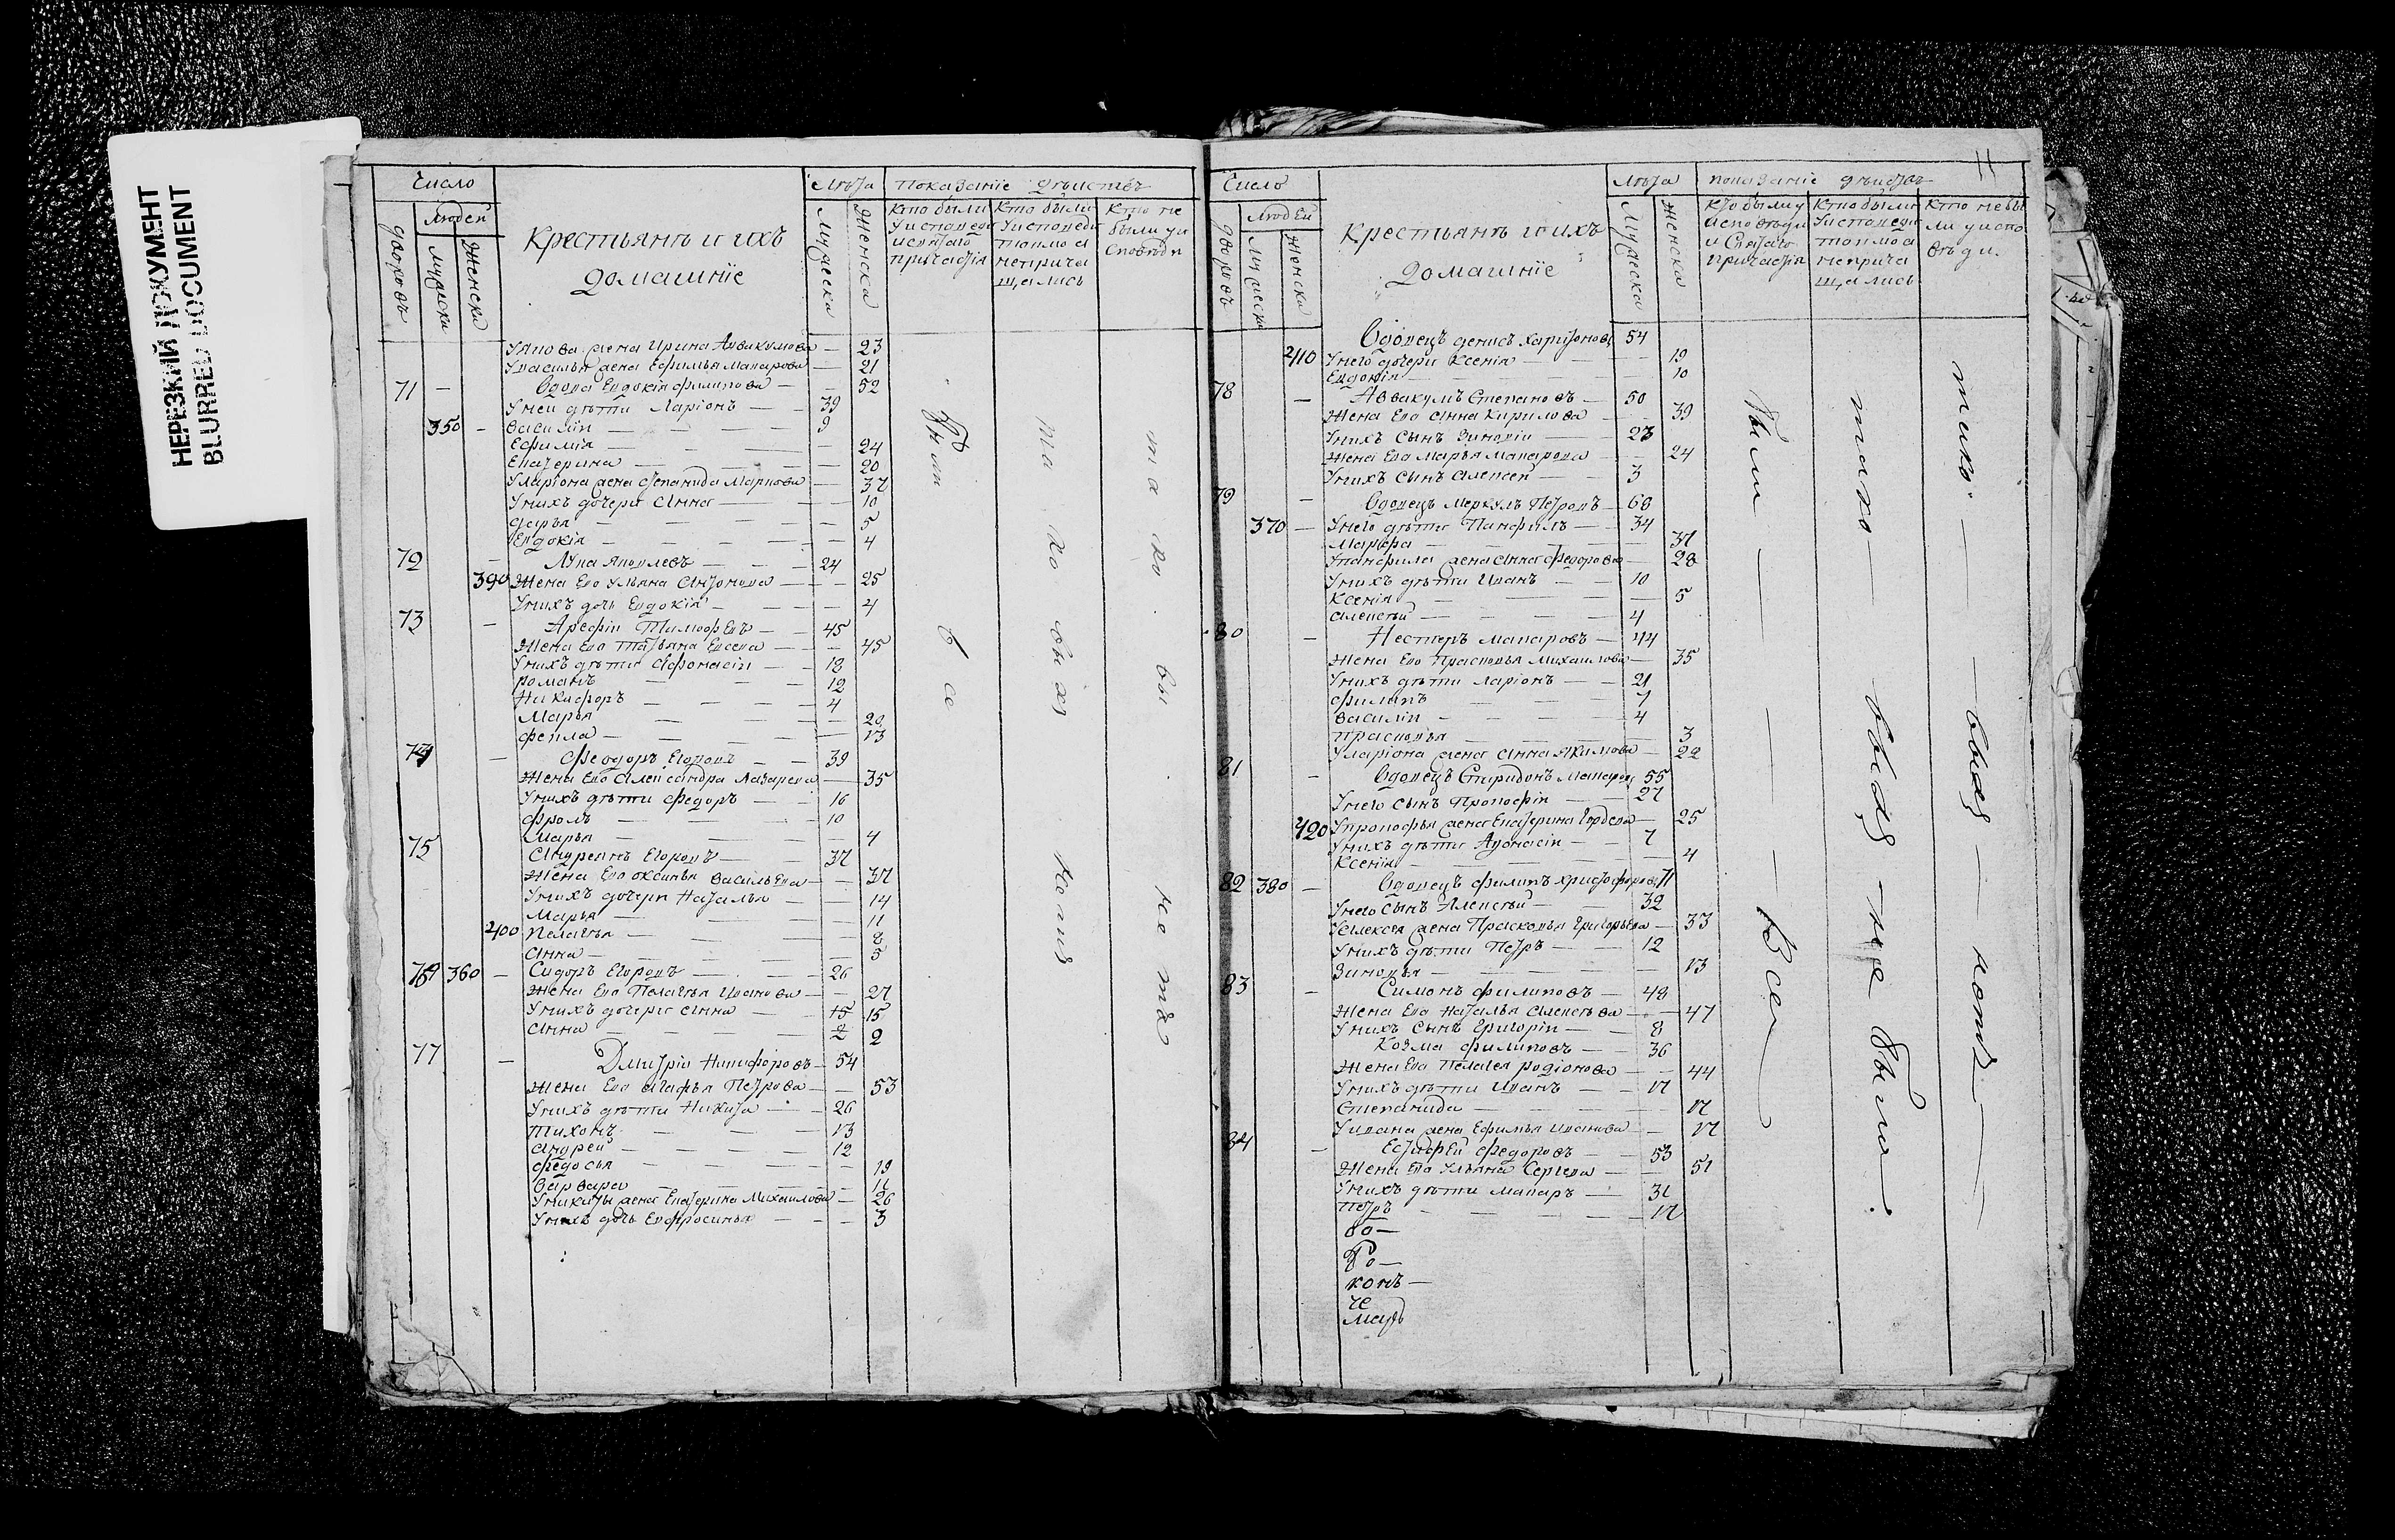 НЕРЕЗКИЙ ДОКУМЕНТ
BLURRED DOCUMENT
Число
Людей
дворовъ
мужеска
женска
Крестьянъ и ихъ
домашнїе
Лѣта
Мужеска
Женска
Показанїе дѣиствъ
Кто были
у исповеди
и святаго
причастїя
Кто были
у исповеди
токмо а
неприча
щались
Кто не
были у и
споведи
Уякова жена Ирина Аввакумова — 23
Увасилья жена Ефимья Макарова — 21
71 — Вдова Евдокїя филипова — — 52
Унеи дѣти Ларїонъ — — 39
350 — василїи — — — 9
Ефимїя — — — 24
Екатерина — — — 20
Уларїона жена степанида Маркова — 37
Унихъ дочери Анна — — 10
дарья — — — 5
Евдокїя — — — 4
72 — Лука яковлевъ — — 24
390 Жена Его Ульяна Антонова — — 25
Унихъ дочь Евдокїя — — 4
73 — Арефїи Тимофѣевъ — 45
Жена Его Татьяна Евсева — — 45
Унихъ дѣти Афонасїи — — 18
романъ — — 12
Никифоръ — — — 4
Марья — — — 20
фекла — — — 13
74 — Феодоръ Егоровъ — — 39
Жена Его Александра Лазарева — 35
Унихъ дѣти федоръ — — 16
фролъ — — — 10
Марья — — — 4
75 Андреянъ Егоровъ — 37
Жена Его оксинья васильева — — 37
Унихъ дочери Наталья — — 14
Марья — — — 11
400 Пелагея — — — 8
Анна — — — 5
76 360 — Сидоръ Егоровъ — — 26
Жена Его Пелагея Иванова — — 27
Унихъ дочери Анна — — 15 15
Анна — — 2 2
77 — Дмитрїи Никифоровъ — 54
Жена Его Агафья Петрова — — 53
Унихъ дѣти Никита — — 26
Тихонъ — — — 13
Андреи — — — 12
федосья — — — 19
варвара — — — 11
Уникиты жена Екатерина Михаилова — 26
Унихъ дочь Евфросинья — — 3
Были
Все
такововыхъ нетъ
таковы не
Число
Людей
дворовъ
мужеска
женска
Крестьянъ и ихъ
домашнїе
Лѣта
Мужеска
женска
показанїе дѣиствъ
кто были у
исповѣди
и Святаго
Причастїя
Кто были
у исповеди
токмо а
неприча
щались
Кто небы
ли у испо
вѣди
Вдовецъ денисъ харитоновъ 54
410 Унего дочери Ксенїя — 19
Евдокїя — 10
78 — Аввакумъ Степановъ — 50
Жена Его Анна Кирилова — 39
Унихъ сынъ Зиновїи — 23
Жена Его Марья Макарова — 24
Унихъ сынъ Алексеи — 3
79 — Вдовецъ Меркулъ Петровъ — 68
370 — Унего дѣти Панфилъ — 34
Марфа — 31
Упанфила жена Анна федорова — 28
Унихъ дѣти Иванъ — — 10
Ксенїя — — 5
Алексѣи — — 4
80 — Нестеръ макаровъ — 44
Жена Его Прасковья Михаилова — 35
Унихъ дѣти ларїонъ — — 21
филипъ — — 7
василїи — — 4
прасковья — — 3
Уларїона жена Анна Якимова — 22
81 — Вдовецъ Спиридонъ Макаровъ 55
Унего сынъ Прокофїи — — 27
420 Упрокофья жена Екатерина Гордеева — 25
Унихъ дѣти Афонасїи — — 7
Ксенїя — — 4
82 380 — Вдовецъ филипъ христофоровъ 71
Унего сынъ Алексѣи — 32
Уалексея жена Прасковья Григорьева — 33
Унихъ дѣти Петръ — — 12
Зиновья — — 13
83 — Симонъ филиповъ — 48
Жена Его Наталья Алексѣева — — 47
Унихъ сынъ Григорїи — — 8
Козма филиповъ — — 36
Жена Его Пелагея родїонова — — 44
Унихъ дѣти Иванъ — — 17
Степанида — — 17
Уивана жена Ефимья Иванова — 17
84 — Естифеи федоровъ — — 53
Жена Его Ульяна Сергеева — — 51
Унихъ дѣти макаръ — 31
Петръ — — 17
во —
Ро —
комъ —
че
марь
были — — Все
тако — выхъ — не было.
такъ — выхъ — нетъ —